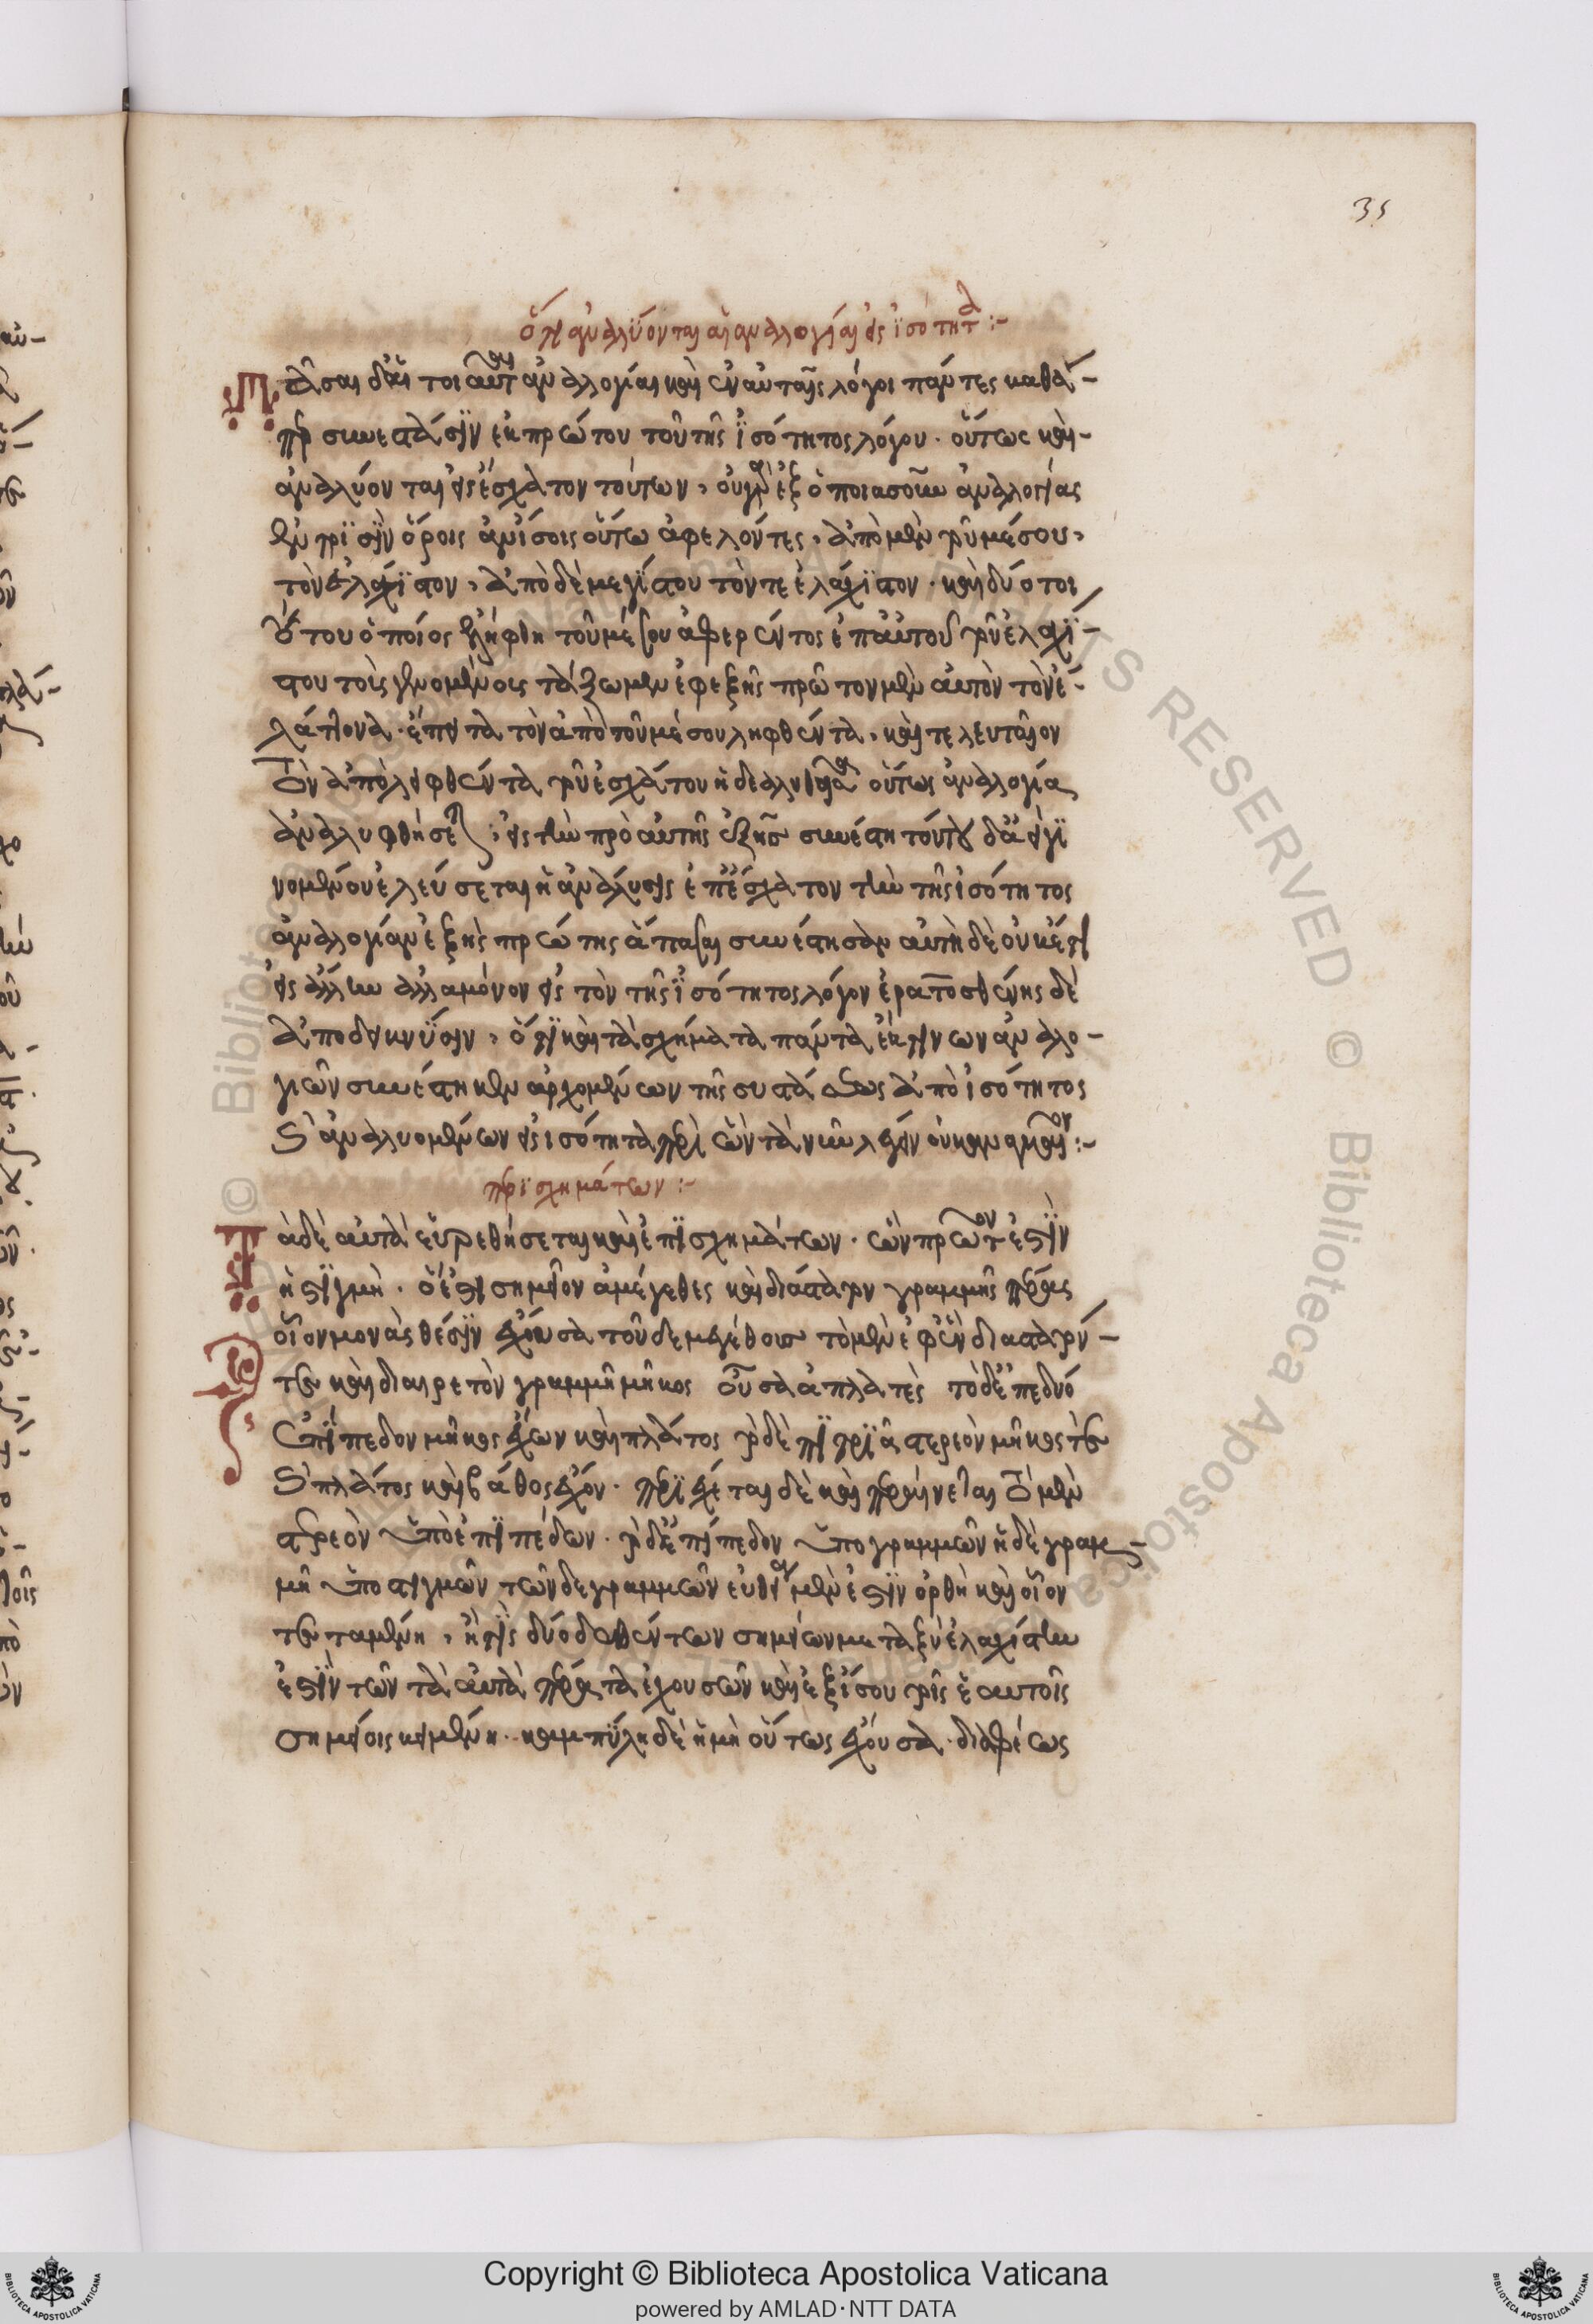 35
ὅτι ἀναλύονται αἱ ἀναλογίαι εἰς ἰσότητα :~
Πᾶσαι δὲ αἱ τοιαῦται ἀναλογίαι καὶ ἐν αὐταῖς λόγοι πάντες καθά-
περ συνέστασιν ἐκ πρώτου τοῦ τῆς ἰσότητος λόγου. οὕτως καὶ
ἀναλύονται εἰς ἔσχατον τοῦτον, οὐ γὰρ ἐξ ὁποιασοῦν ἀναλογίας
ἐν τρισὶν ὅροις ἀνίσοις οὕτω ἀφελόντες, ἀπὸ μὲν τοῦ μέσου,
τὸν ἐλάχιστον, ἀπὸ δὲ μεγίστου τόν τε ἐλάχιστον. καὶ δύο τοι
ούτου ὁποῖος ἐλήφθη τοῦ μέσου ἀφερέντος ἐπ' αὐτοῦ τοῦ ἐλαχί-
στου τοῖς γενομένοις τάξωμεν ἐφεξῆς πρῶτον μὲν αὐτὸν τὸν ἐ-
λάττονα. ἔπειτα τὸν ἀπὸ τοῦ μέσου ληφθέντα, καὶ τελευταῖον
τὸν ἀπολειφθέντα τοῦ ἐσχάτου ἡ δὲ οὕτως ἀναλογία
ἀναλυφθήσεται, εἰς τὴν πρὸ αὐτῆς ἐξ ἧς συνέστη τούτου δὲ ἀεὶ γι
νομένου ἐλεύσεται ἡ ἀνάλυσις ἐπ' ἔσχατον τὴν τῆς ἰσότητος
ἀναλογίαν ἐξ ἧς πρώτης ἅπασαι συνέστησαν αὐτὴ δὲ οὐκέτι
εἰς ἄλλην ἀλλὰ μόνον εἰς τὸν τῆς ἰσότητος λόγον ἐρατοσθένης δὲ
ἀποδείκνυσιν, ὅτι καὶ τὰ σχήματα πάντα ἐκ τινων ἀναλο-
γιῶν συνέστηκεν ἀρχομένων τῆς συστάσεως ἀπὸ ἰσότητος
καὶ ἀναλυομένων εἰς ἰσότητα περὶ ὧν τὰ νῦν λέγειν οὐκ ἀναγκαῖον :~
περὶ σχημάτων :~
Τὰ δὲ αὐτὰ εὑρεθήσεται καὶ ἐπὶ σχημάτων. ὧν πρῶτόν ἐστιν
ἡ στιγμή. ὅ ἐστι σημεῖον ἀμέγεθες καὶ διάστατον γραμμῆς πέρας
οἷον μονὰς θέσιν ἔχουσα τοῦ δὲ μεγέθους τὸ μὲν ἐφ' ἓν διαστατόν
τε καὶ διαιρετὸν γραμμὴ μῆκος οὖσα ἀπλατές τὸ δὲ ἐπὶ δύο
ἐπίπεδον μῆκος ἔχων καὶ πλάτος τὸ δὲ ἐπὶ τρία στερεὸν μῆκός τε
καὶ πλάτος καὶ βάθος ἔχον. περιέχεται δὲ καὶ περαίνεται τὸ μὲν
στερεὸν ὑπὸ ἐπιπέδων. τὸ δὲ ἐπίπεδον ὑπὸ γραμμῶν ἡ δὲ γραμ-
μὴ ὑπὸ στιγμῶν τῶν δὲ γραμμῶν εὐθεῖα μέν ἐστιν ὀρθὴ καὶ οἷον
τεταμένη, ἥτις δύο δοθέντων σημείων μεταξὺ ἐλαχίστη
ἐστὶν τῶν τὰ αὐτὰ πέρατα ἐχουσῶν καὶ ἐξ ἴσου τοῖς ἑαυτοῖς
σημείοις κειμένη. καμπύλη δὲ ἡ μὴ οὕτως ἔχουσα. διαφέρως
Copyright © Biblioteca Apostolica Vaticana
powered by AMLAD·NTT DATA